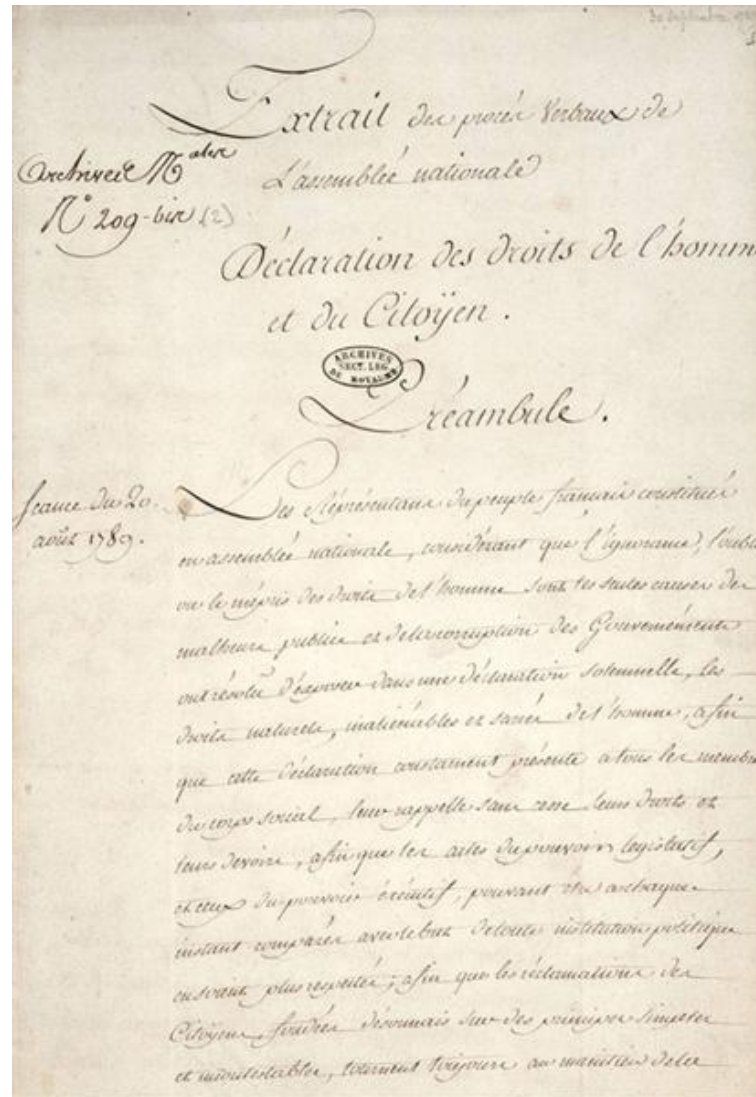 30 Septembre
Extrait des procès Verbaux de
L'assemblée nationale
Archives N^ales
N° 209-bis (2)
Déclaration des droits de l'homm
et du Citoÿen.
ARCHIVES
SECT. LEG.
DU ROYAUME
Préambule.
Seance du 20
août 1789.
Les Réprésentans du peuple français constitués
en assemblée nationale, considérant que l'ignorance, l'oubli
ou le mépris des droits de l'homme sont les seules causes des
malheurs publics et de la corruption des Gouvernements
ont résolu d'exposer dans une déclaration solemnelle, les
droits naturels, inaliénables et sacrés de l'homme, afin
que cette déclaration constament présente a tous les membre
du corps social, leur rappelle sans cesse leurs droits et
leurs devoirs, afin que les actes du pouvoir législatif,
et ceux du pouvoir éxécutif, pouvant être a chaque
instant comparés avec le but de toute institution politique
en soient plus respectés; afin que les réclamations des
Citoÿens, fondées désormais sur des principes simples
et incontestables, tournent toujours au maintien de la